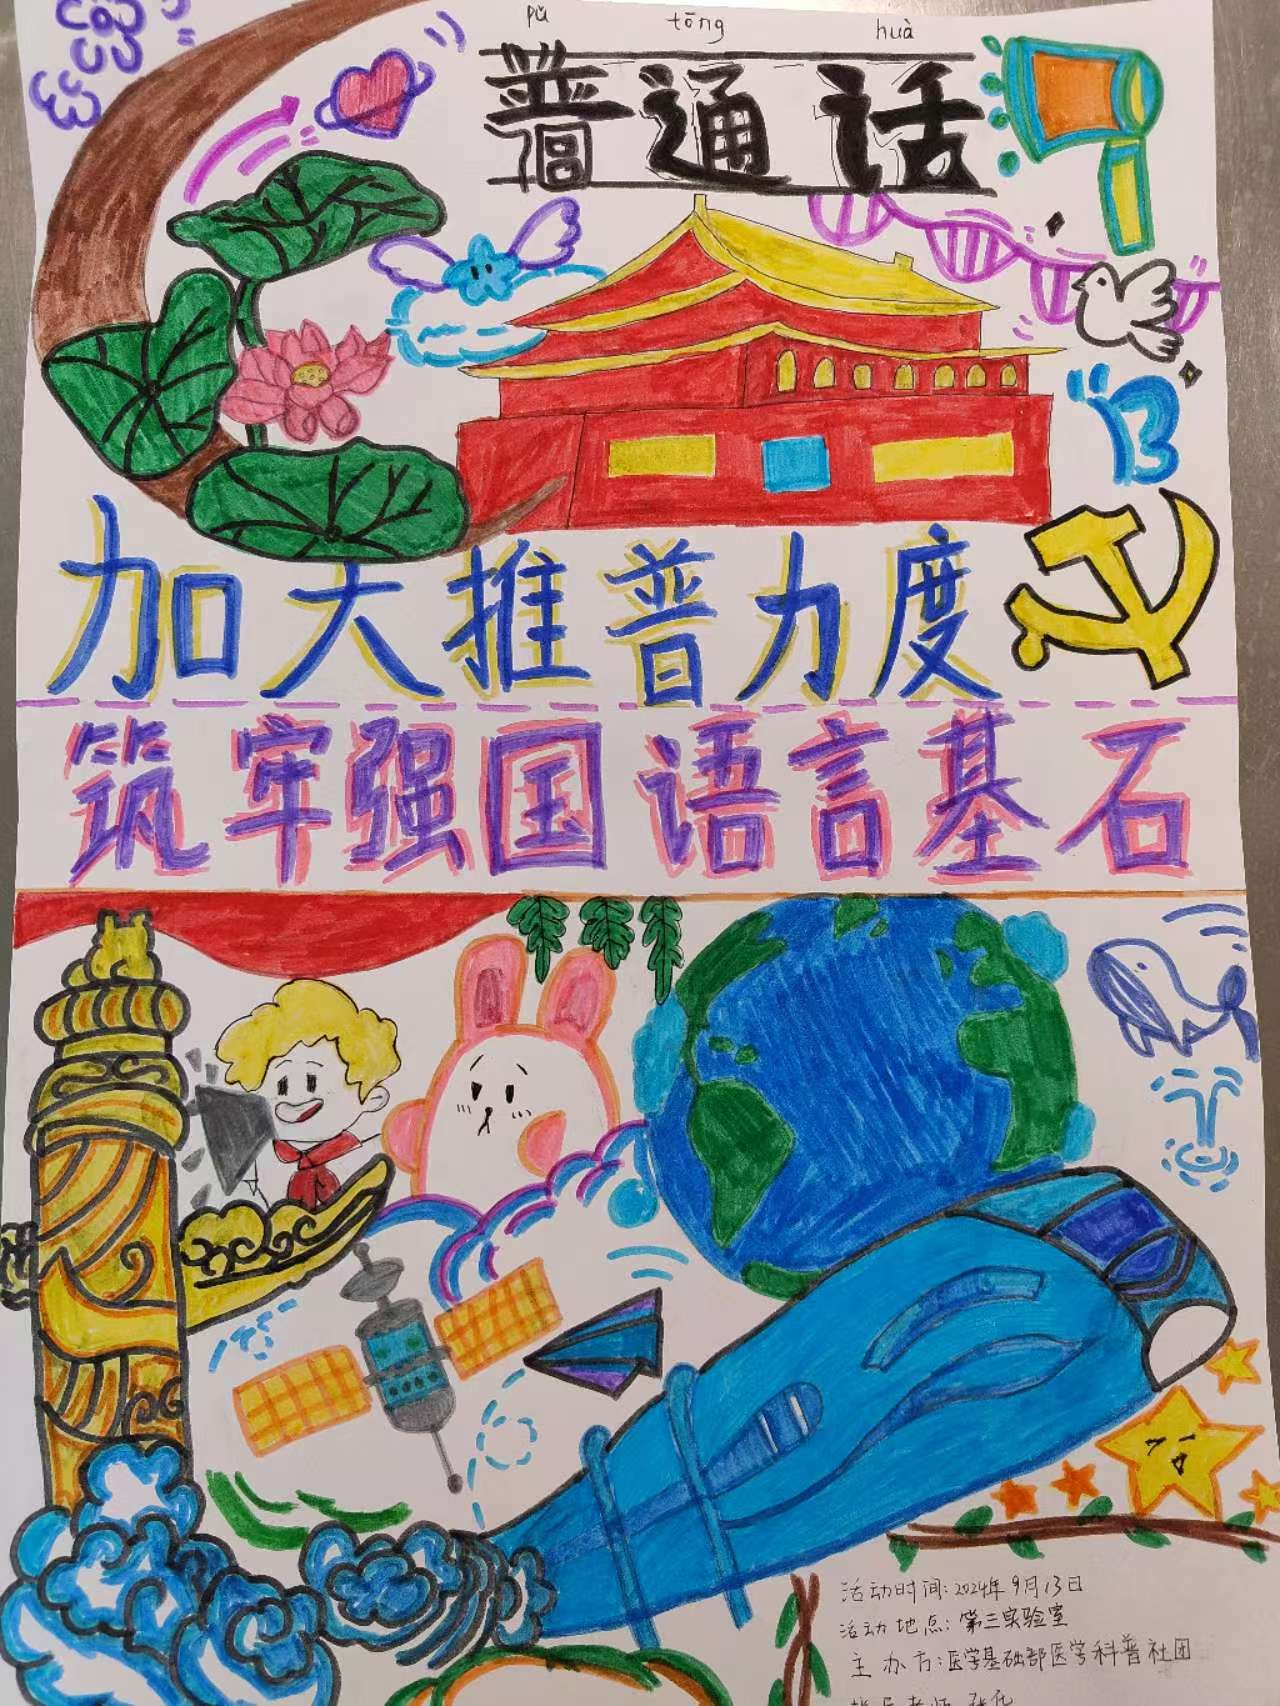 pǔ tōng huà
普通话
加大推普力度
筑牢强国语言基石
活动时间:2024年9月13日
活动地点:第三实验室
主办方:医学基础部医学科普社团